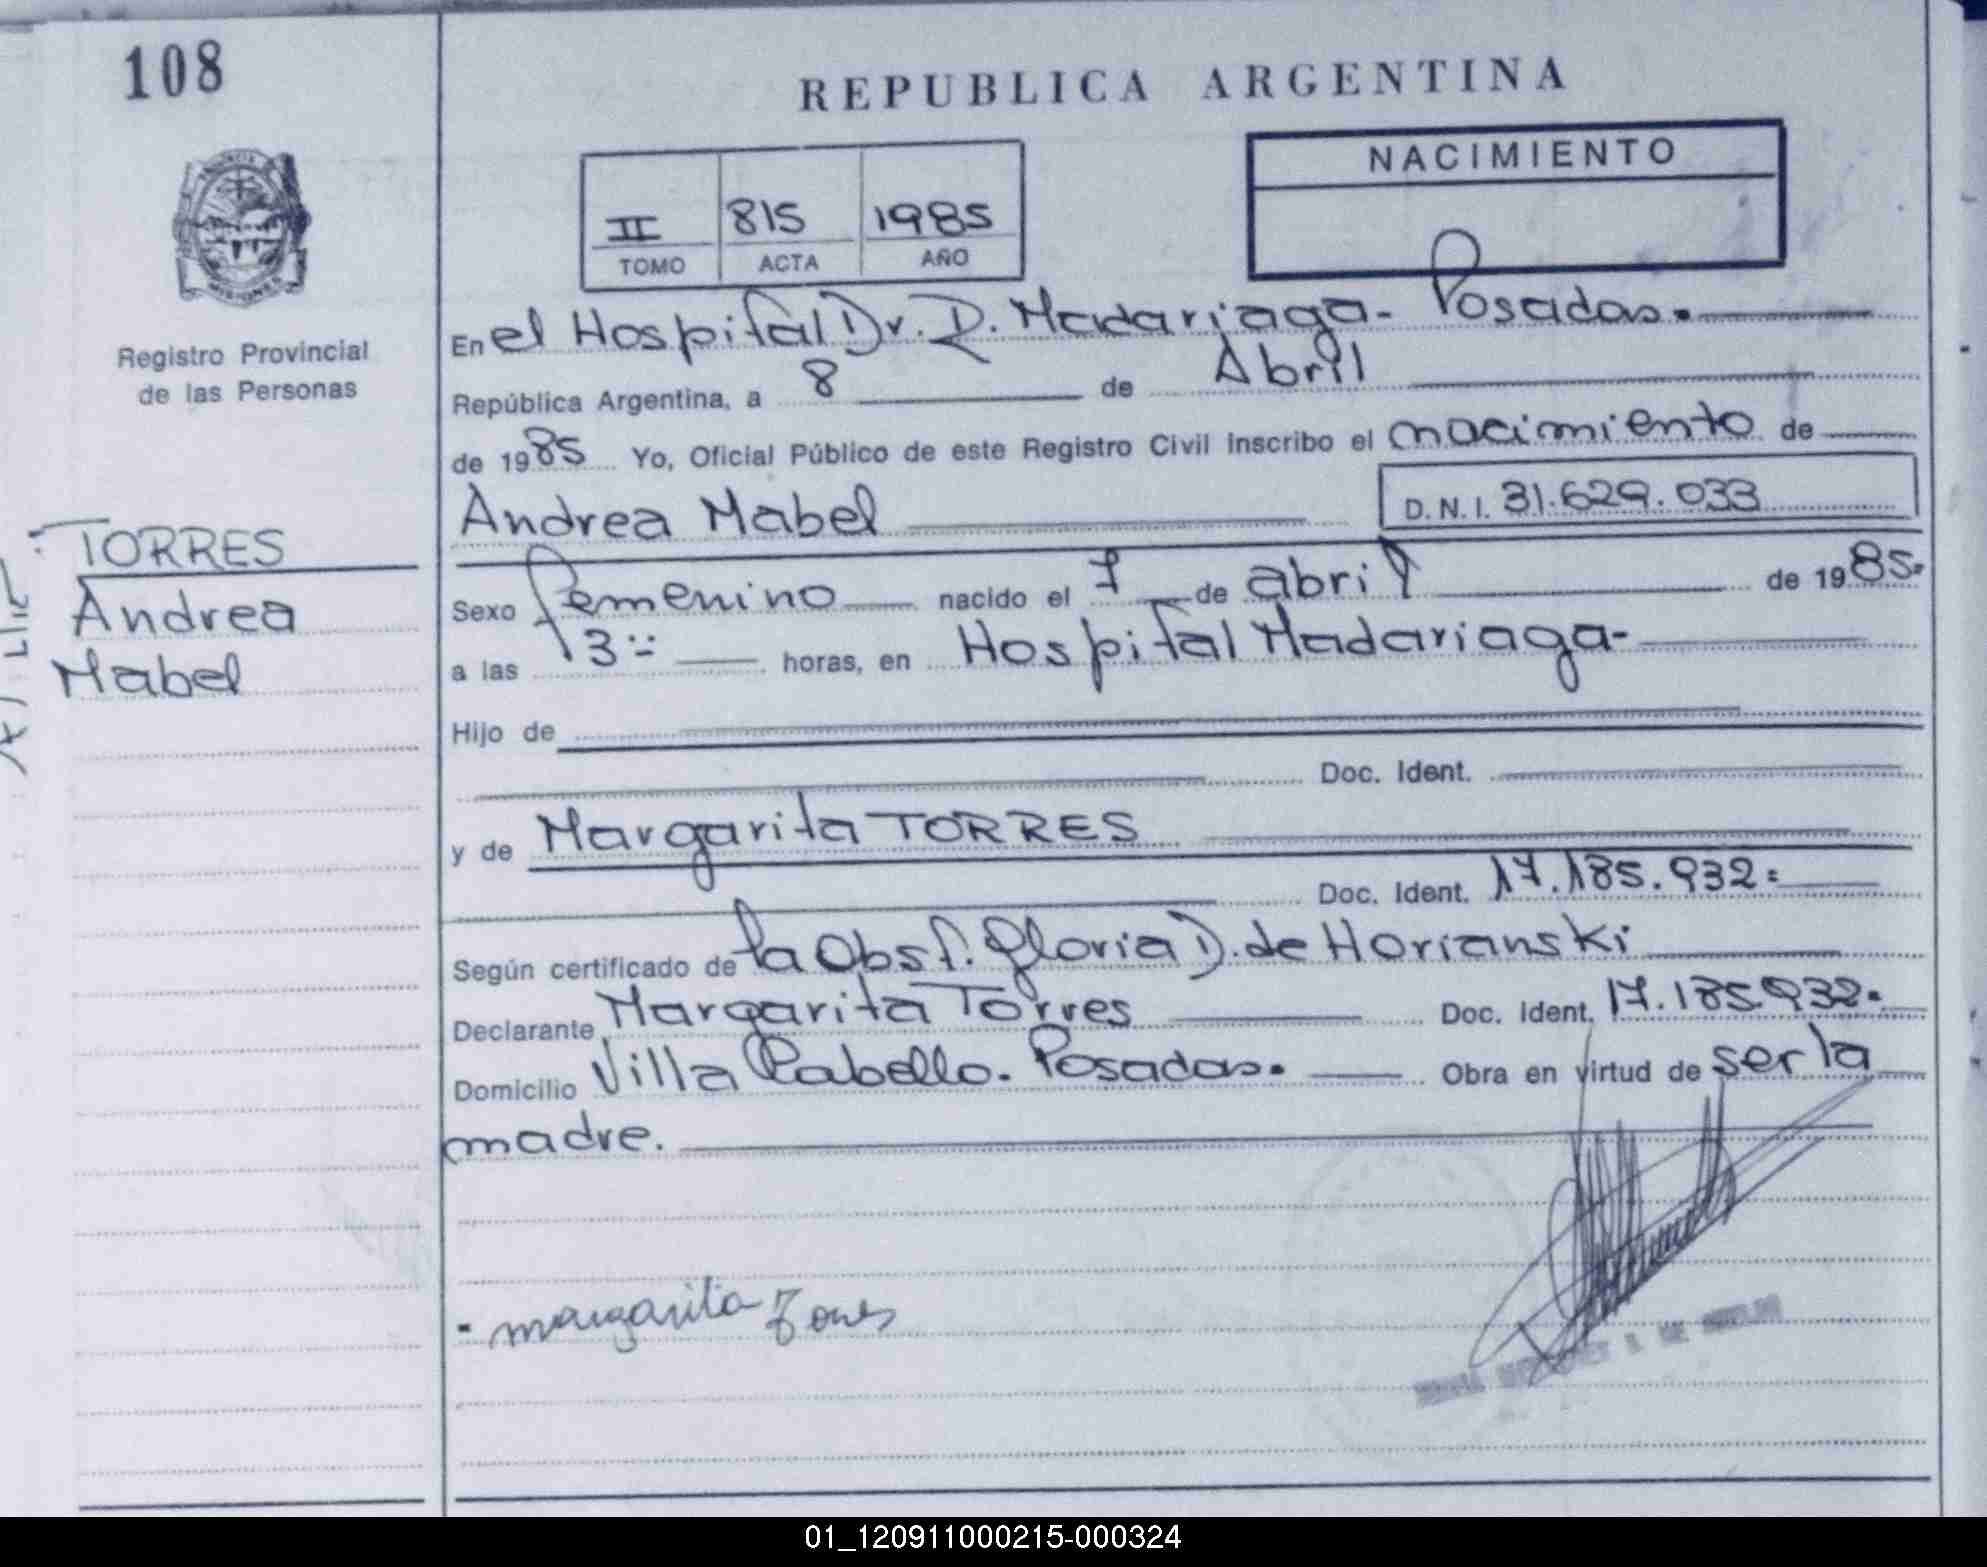 108
REPUBLICA ARGENTINA
NACIMIENTO
II 815 1985
TOMO ACTA AÑO
MISIONES
Registro Provincial
de las Personas
En el Hospital Dr. R. Madariaga - Posadas.
República Argentina, a 8 de Abril
de 1985 Yo, Oficial Público de este Registro Civil inscribo el nacimiento de
Andrea Mabel D.N.I. 31.629.033
TORRES
Andrea
Mabel
Sexo femenino nacido el 7 de abril de 1985.
a las 13:: horas, en Hospital Madariaga-
Hijo de
Doc. Ident.
y de Margarita TORRES
Doc. Ident. 17.185.932:
Según certificado de la Obst. Gloria D. de Horianski
Declarante Margarita Torres Doc. Ident. 17.185.932.
Domicilio Villa Cabello. Posadas. Obra en virtud de ser la
madre.
margarita Torres
01_120911000215-000324